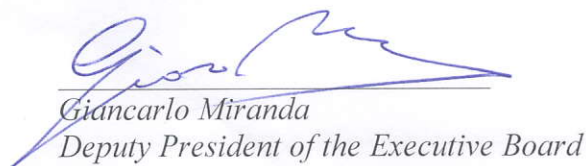 Giancarlo Miranda
Deputy President of the Executive Board